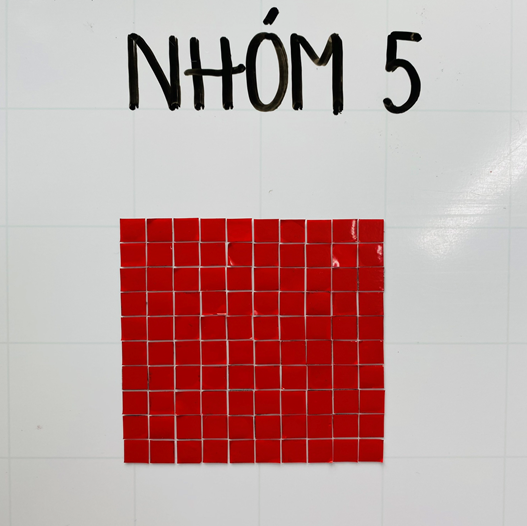 NHÓM 5